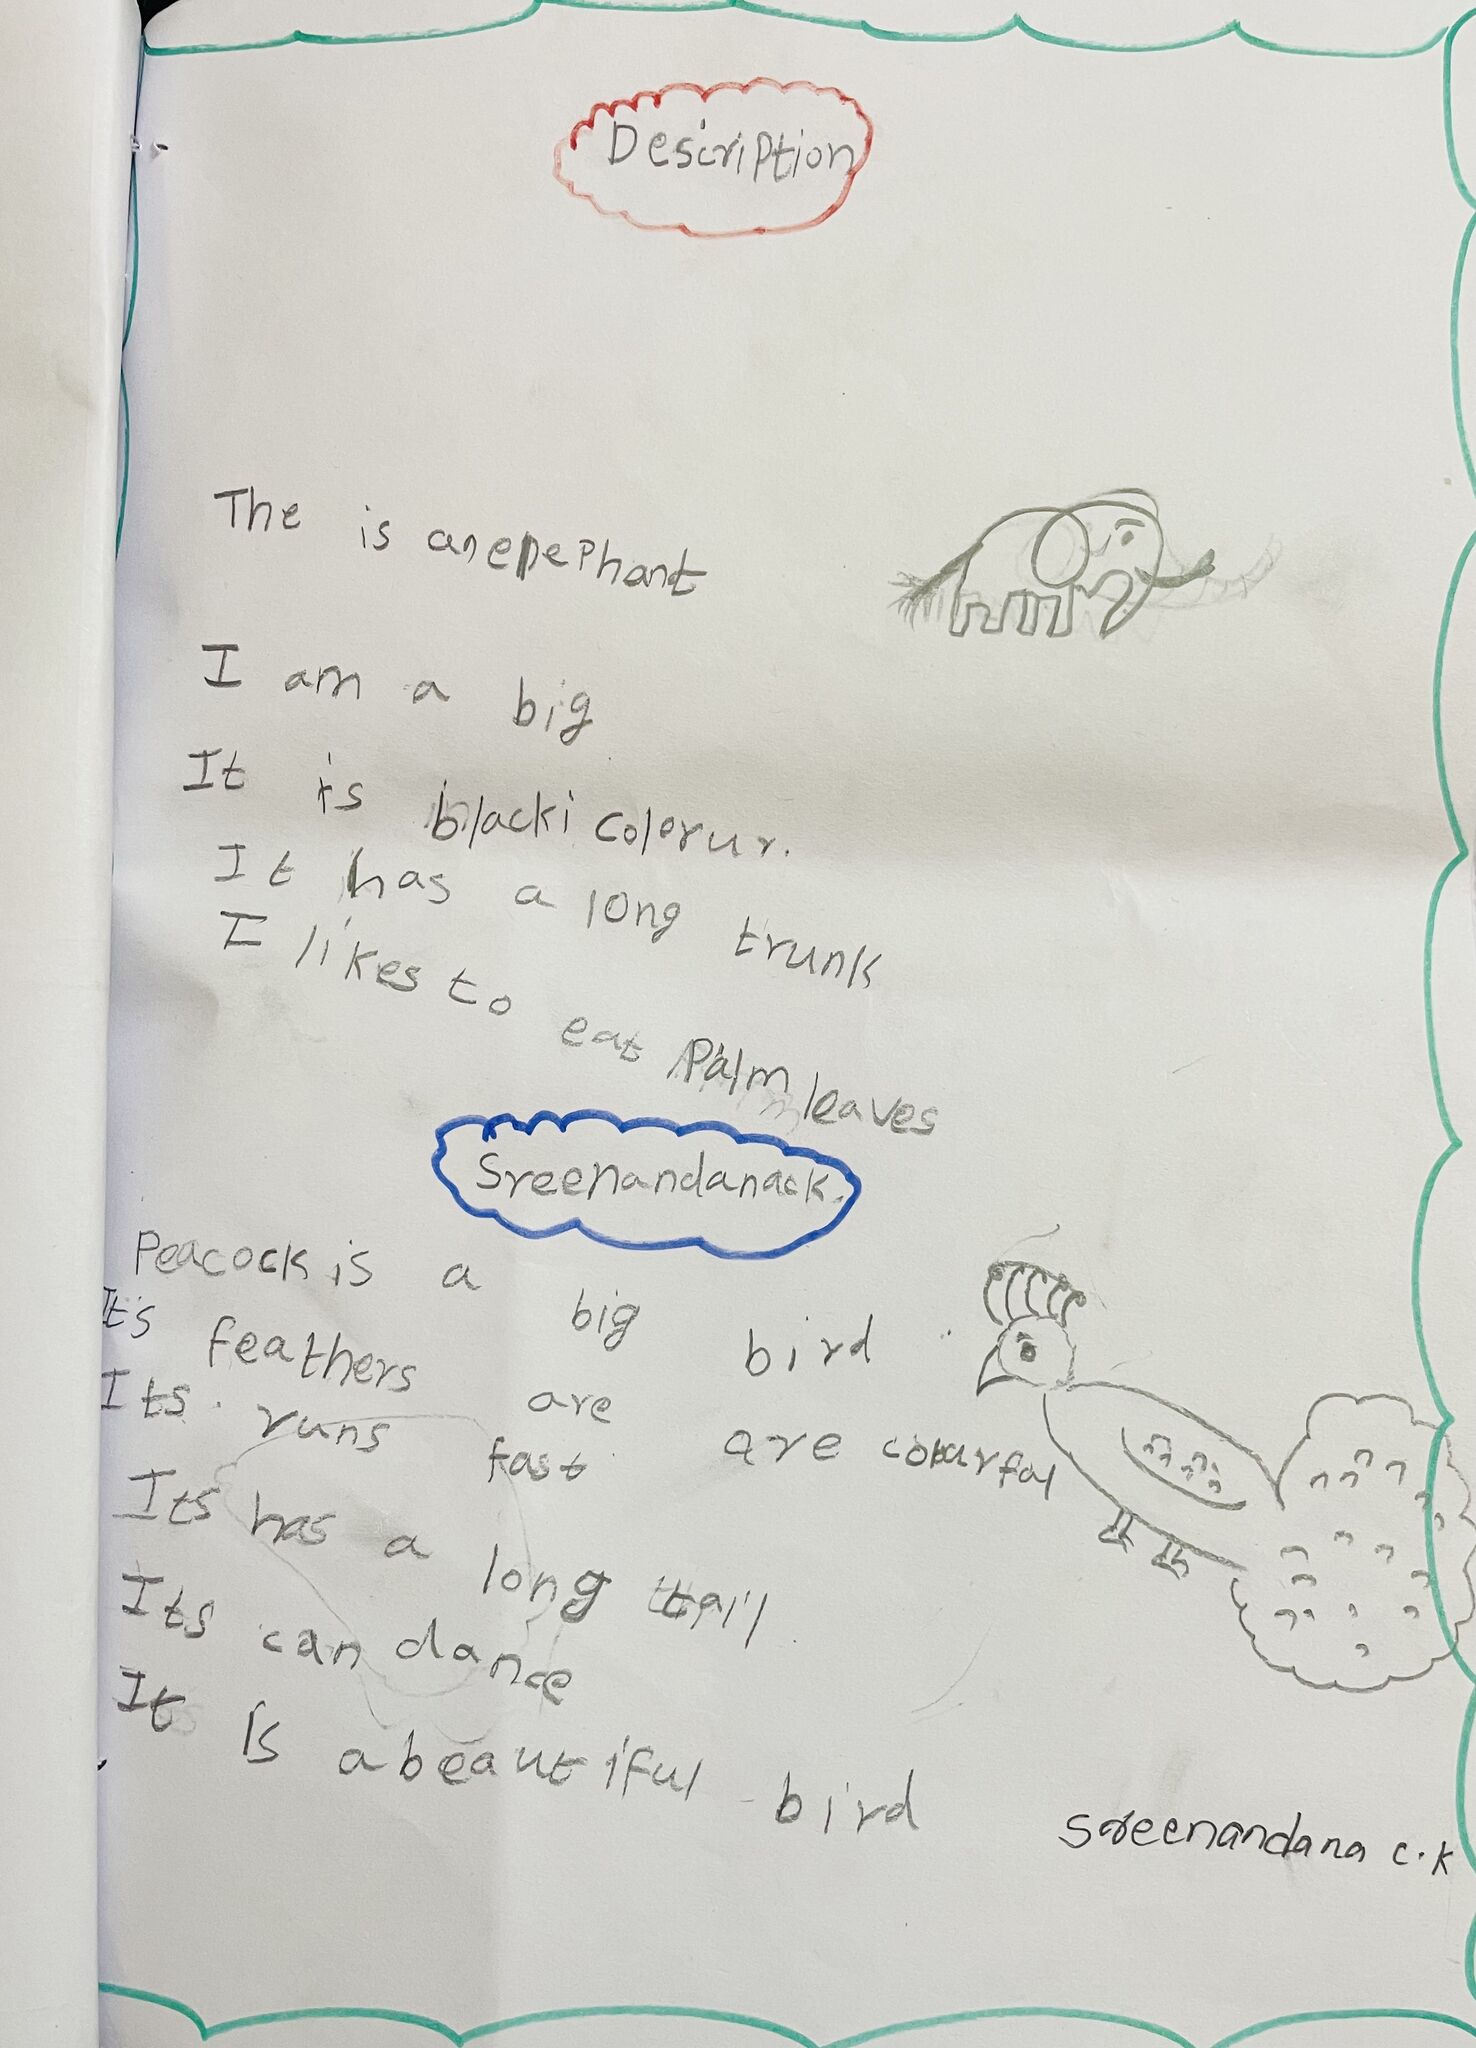 Description
The is anepephant
I am a big
It is blacki colorur.
It has a long trunk
I likes to eat Palm leaves
Sreenandanack.
Peacock is a big bird.
It's feathers are are colourful
Its runs fast
Its has a long ttail.
Its can dance
It is abeautiful bird
Sreenandana C.K